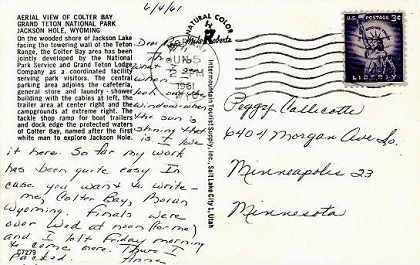 6/4/61
AERIAL VIEW OF COLTER BAY
GRAND TETON NATIONAL PARK
JACKSON HOLE, WYOMING
On the wooded shore of Jackson Lake
facing the towering wall of the Teton
Range, the Colter Bay area has been
jointly developed by the National
Park Service and Grand Teton Lodge
Company as a coordinated facility
serving park visitors. The central
parking area adjoins the cafeteria,
general store and laundry - shower
building with the cabins at left, the
trailer area at center right and the
campgrounds at extreme right. The
tackle shop ramp for boat trailers
and dock edge the protected waters
of Colter Bay, named after the first
white man to explore Jackson Hole.
Dear
This
is
when I
look out the
window when
the sun is
shining that
is. I love
it here. So far my work
has been quite easy. In
case you want to write-
me, Colter Bay, Moran
Wyoming. Finals were
over Wed at noon (for me)
and I left Friday morning
to come here.
Packed. Anne
C7279
NATURAL COLOR
JUN 5
2 PM
1961
Intermountain Tourist Supply, Inc., Salt Lake City 1, Utah
U.S. POSTAGE 3¢
LIBERTY
Peggy Callicotte
6404 Morgan Ave So.
Minneapolis 23
Minnesota